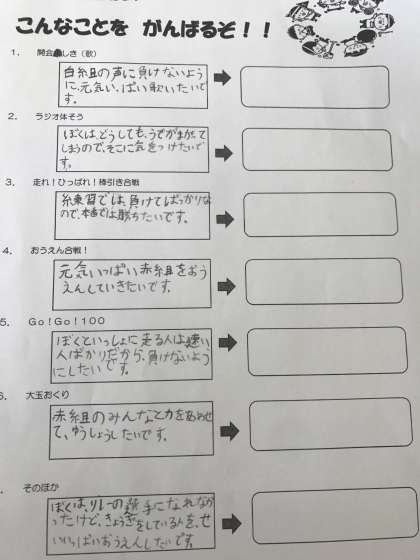 こんなことを がんばるぞ！！
1. 開会しき（歌）
白組の声に負けないよう
に、元気いっぱい歌いたいで
す。
2. ラジオ体そう
ぼくは、どうしても、うでがまがって
しまうので、そこに気をつけたいで
す。
3. 走れ！ひっぱれ！棒引き合戦
練習では、負けてばっかりな
ので、本番では勝ちたいです。
4. おうえん合戦！
元気いっぱい赤組をおう
えんしていきたいです。
5. Go！Go！100
ぼくといっしょに走る人は速い
人ばかりだから、負けないよう
にしたいです。
6. 大玉おくり
赤組のみんなと力をあわせ
て、ゆうしょうしたいです。
そのほか
ぼくは、リレーの選手になれなか
ったけど、きょうぎをしている人を、せ
いいっぱいおうえんしたいです。